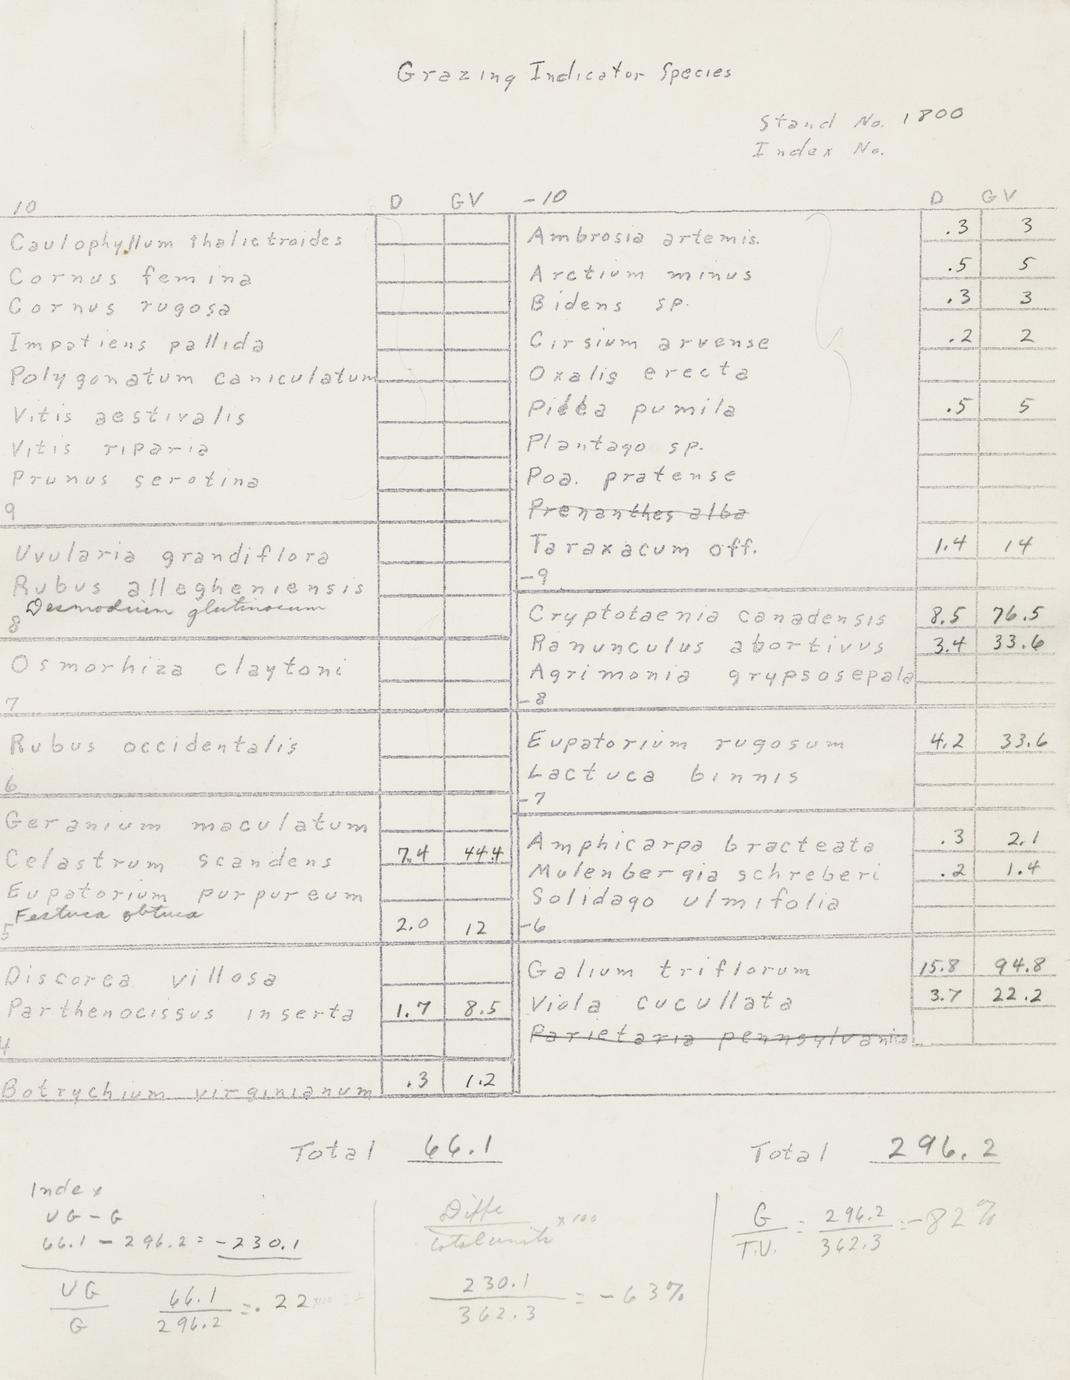 Grazing Indicator Species
Stand No. 1800
Index No.
10 D GV
Caulophyllum thalictroides
Cornus femina
Cornus rugosa
Impatiens pallida
Polygonatum caniculatum
Vitis aestivalis
Vitis riparia
Prunus serotina
9
Uvularia grandiflora
Rubus allegheniensis
Desmodium glutinosum
8
Osmorhiza claytoni
7
Rubus occidentalis
6
Geranium maculatum
Celastrum scandens 7.4 44.4
Eupatorium purpureum
Festuca obtusa 2.0 12
5
Discorea villosa
Parthenocissus inserta 1.7 8.5
4
Botrychium virginianum .3 1.2
Total 66.1
-10 D GV
Ambrosia artemis. .3 3
Arctium minus .5 5
Bidens sp. .3 3
Cirsium arvense .2 2
Oxalis erecta
Pilea pumila .5 5
Plantago sp.
Poa. pratense
Prenanthes alba
Taraxacum off. 1.4 14
-9
Cryptotaenia canadensis 8.5 76.5
Ranunculus abortivus 3.4 33.6
Agrimonia grypsosepala
-8
Eupatorium rugosum 4.2 33.6
Lactuca binnis
-7
Amphicarpa bracteata .3 2.1
Mulenbergia schreberi .2 1.4
Solidago ulmifolia
-6
Galium triflorum 15.8 94.8
Viola cucullata 3.7 22.2
Parietaria pennsylvanica
Total 296.2
Index
UG - G
66.1 - 296.2 = -230.1
UG
G
66.1
296.2
= .22
Diffe
total units
x 100
230.1
362.3
= -63%
G
T.U.
=
296.2
362.3
= -82%